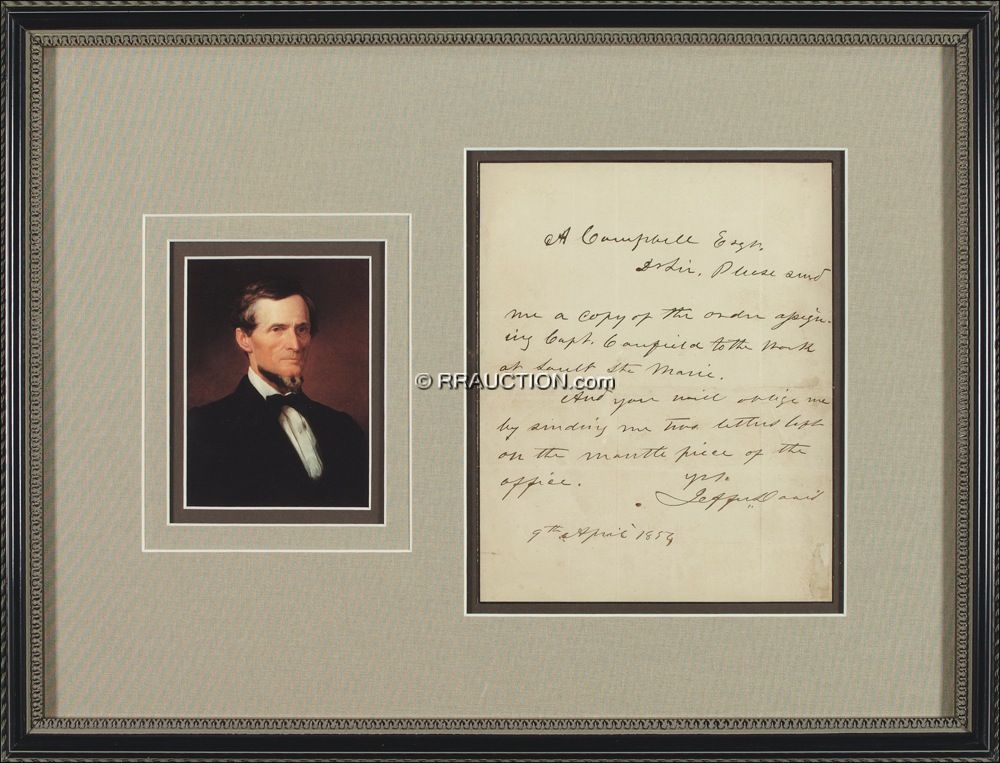 A Campbell Esqr.
Dr Sir, Please send
me a copy of the order assign-
ing Capt. Canfield to the work
at Sault Ste Marie.
And you will oblige me
by sending me two letters left
on the mantle piece of the
office. yrs.
Jeffer. Davis
9th April 1854
© RRAUCTION.com